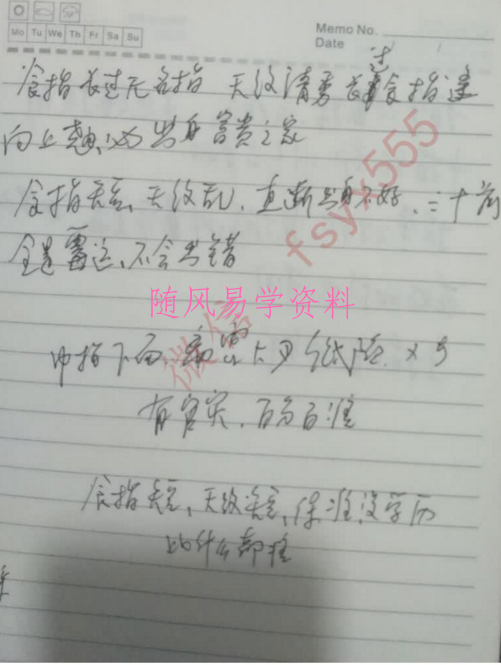 Memo No.
Mo Tu We Th Fr Sa Su
Date / /
过
食指长过无名指 天纹清秀长食指边
向上翘,必出身富贵之家
食指短、天纹乱,直断出身不好,二十前
全是霉运、不会出错
随风易学资料
微信 fsyx555
中指下面
有官灾,百分百准
食指短、天纹短、保准没学历
比什么都准